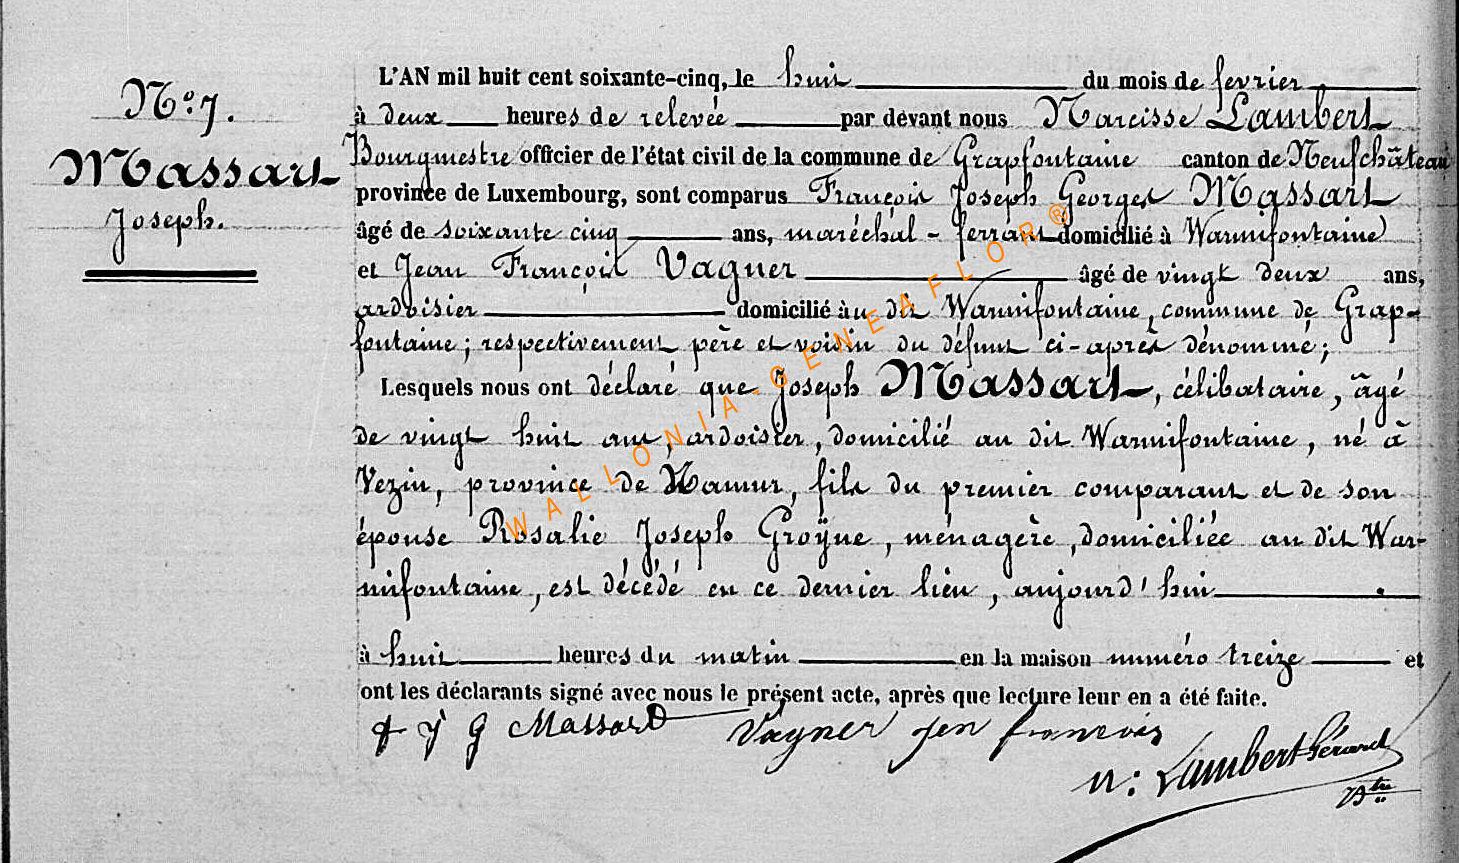 N.º 7.
Massart
Joseph.
L'AN mil huit cent soixante-cinq, le huit du mois de fevrier
à deux heures de relevée par devant nous Narcisse Lambert
Bourgmestre officier de l'état civil de la commune de Grapfontaine canton de Neufchâteau
province de Luxembourg, sont comparus François Joseph Georges Massart
âgé de soixante cinq ans, maréchal-ferrant domicilié à Warmifontaine
et Jean François Vagner âgé de vingt deux ans,
ardoisier domicilié au dit Warmifontaine, commune de Grap-
fontaine; respectivement père et voisin du défunt ci-après dénommé;
Lesquels nous ont déclaré que Joseph Massart, célibataire, âgé
de vingt huit ans, ardoisier, domicilié au dit Warmifontaine, né à
Vezin, province de Namur, fils du premier comparant et de son
épouse Rosalie Joseph Groÿne, ménagère, domiciliée au dit War-
mifontaine, est décédé en ce dernier lieu, aujourd'hui
à huit heures du matin en la maison numéro treize et
ont les déclarants signé avec nous le présent acte, après que lecture leur en a été faite.
f j g Massard Vagner jen francois
N: Lambert Gérard
WALLONIA-GENEAFLOR®